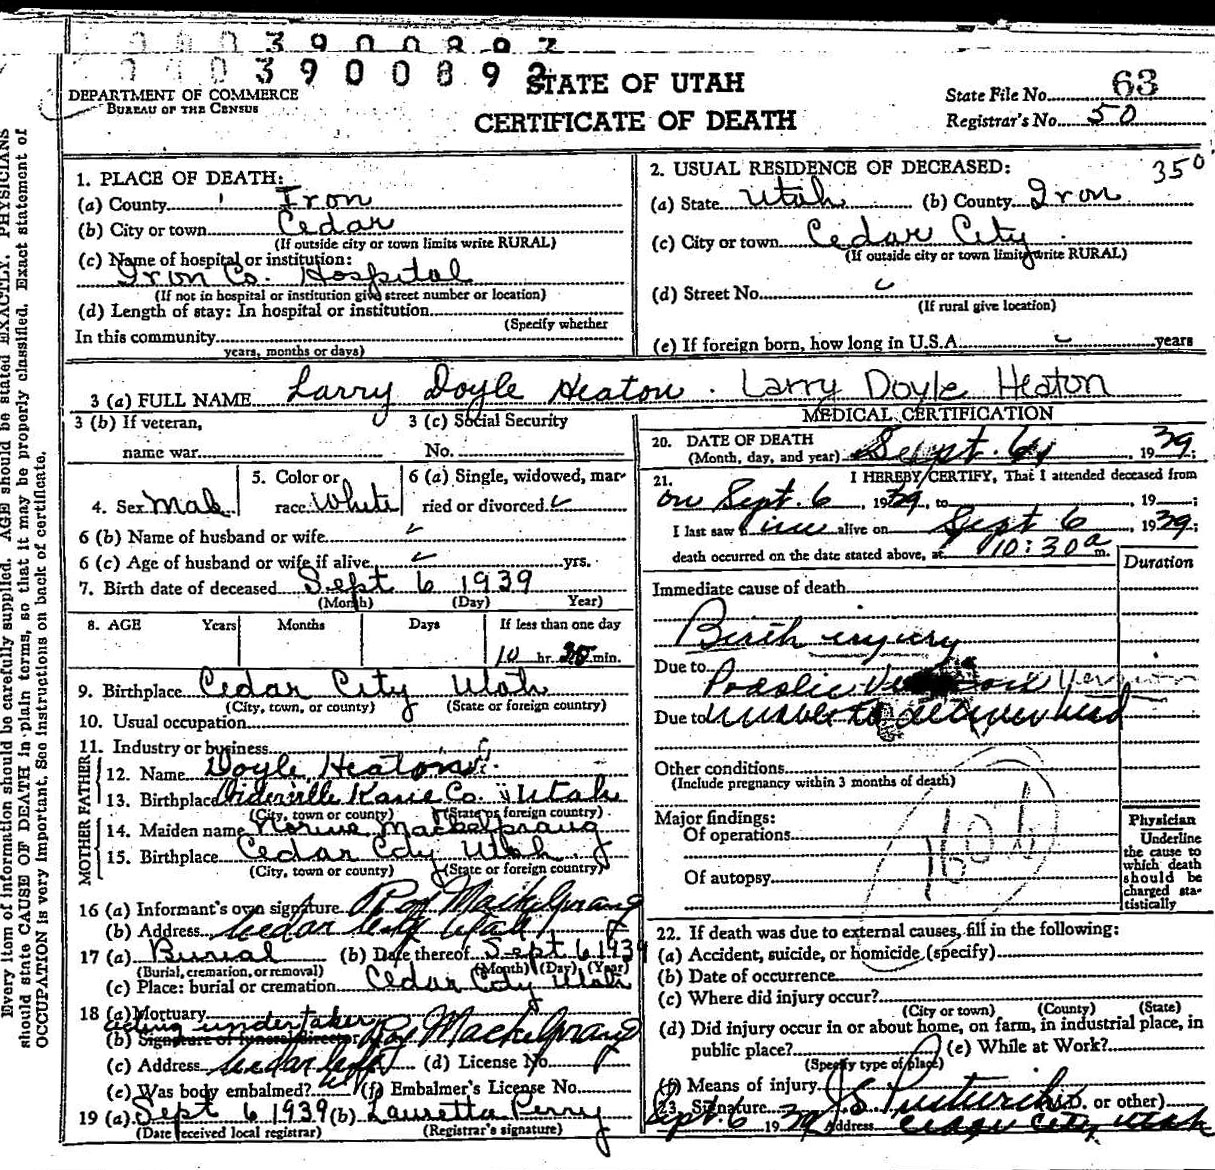 3900892
3900892
STATE OF UTAH
CERTIFICATE OF DEATH
DEPARTMENT OF COMMERCE
BUREAU OF THE CENSUS
State File No. 63
Registrar's No. 50
350
1. PLACE OF DEATH:
(a) County Iron
(b) City or town Cedar
(If outside city or town limits write RURAL)
(c) Name of hospital or institution:
Iron Co. Hospital
(If not in hospital or institution give street number or location)
(d) Length of stay: In hospital or institution
(Specify whether
In this community
years, months or days)
2. USUAL RESIDENCE OF DECEASED:
(a) State Utah (b) County Iron
(c) City or town Cedar City
(If outside city or town limits write RURAL)
(d) Street No.
(If rural give location)
(e) If foreign born, how long in U.S.A. years
3 (a) FULL NAME Larry Doyle Heaton. Larry Doyle Heaton
3 (b) If veteran, 3 (c) Social Security
name war No.
4. Sex Male 5. Color or race White 6 (a) Single, widowed, married or divorced
6 (b) Name of husband or wife
6 (c) Age of husband or wife if alive yrs.
7. Birth date of deceased Sept 6 1939
(Month) (Day) Year)
8. AGE Years Months Days If less than one day
10 hr. 30 min.
9. Birthplace Cedar City Utah
(City, town, or county) (State or foreign country)
10. Usual occupation
11. Industry or business
FATHER
12. Name Doyle Heaton
13. Birthplace Orderville Kane Co. Utah
(City, town or county) (State or foreign country)
MOTHER
14. Maiden name Norine Mackelprang
15. Birthplace Cedar City Utah
(City, town or county) (State or foreign country)
16 (a) Informant's own signature Roy Mackelprang
(b) Address Cedar City Utah
17 (a) Burial (b) Date thereof Sept 6 1939
(Burial, cremation, or removal) (Month) (Day) (Year)
(c) Place: burial or cremation Cedar City Utah
18 (a) Mortuary
acting undertaker
(b) Signature of funeral director Roy Mackelprang
(c) Address Cedar City (d) License No.
(e) Was body embalmed? (f) Embalmer's License No.
19 (a) Sept 6 1939 (b) Lauretta Perry
(Date received local registrar) (Registrar's signature)
MEDICAL CERTIFICATION
20. DATE OF DEATH
(Month, day, and year) Sept. 6, 1939;
21. I HEREBY CERTIFY, That I attended deceased from
on Sept. 6, 1939, to 19 ;
I last saw him alive on Sept 6, 1939;
death occurred on the date stated above, at 10:30 a m.
Duration
Immediate cause of death
Birth injury
Due to Podalic Version
Due to unable to deliver head
Other conditions
(Include pregnancy within 3 months of death)
Major findings:
Of operations
Of autopsy
160b
Physician
Underline
the cause to
which death
should be
charged sta-
tistically
22. If death was due to external causes, fill in the following:
(a) Accident, suicide, or homicide (specify)
(b) Date of occurrence
(c) Where did injury occur?
(City or town) (County) (State)
(d) Did injury occur in or about home, on farm, in industrial place, in
public place? (e) While at Work?
(Specify type of place)
(f) Means of injury
23. Signature J.S. M.D. or other)
Sept. 6 1939 Address Cedar City, Utah
Every item of information should be carefully supplied. AGE should be stated EXACTLY. PHYSICIANS
should state CAUSE OF DEATH in plain terms, so that it may be properly classified. Exact statement of
OCCUPATION is very important. See instructions on back of certificate.